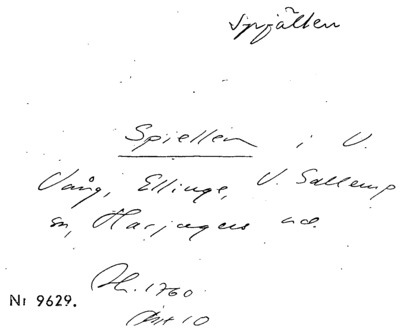 Spjälten
Spiellen i V.
Vång, Ellinge, V. Sallerup
sn, Harjagers hd.
Lh. 1760
Akt 10
Nr 9629.